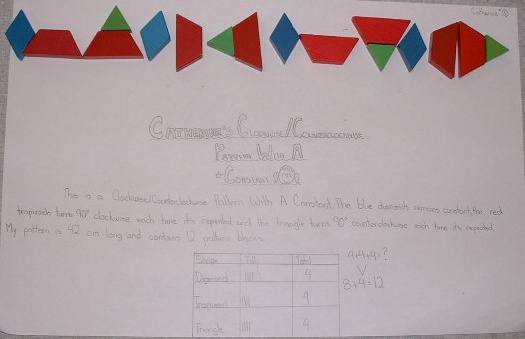 Catherine
CATHERINE'S CLOCKWISE/COUNTERCLOCKWISE
PATTERN WITH A
☆ CONSTANT
This is a Clockwise/Counterclockwise Pattern With A Constant. The blue diamonds remains constant, the red
trapizoids turns 90° clockwise each time its repeated and the triangle turns 90° counterclockwise each time its repeated.
My pattern is 42 cm long and contains 12 pattern blocks.
Shape Tally Total 4+4+4=?
Diamond |||| 4 8+4=12
Trapizoid |||| 4
Triangle |||| 4